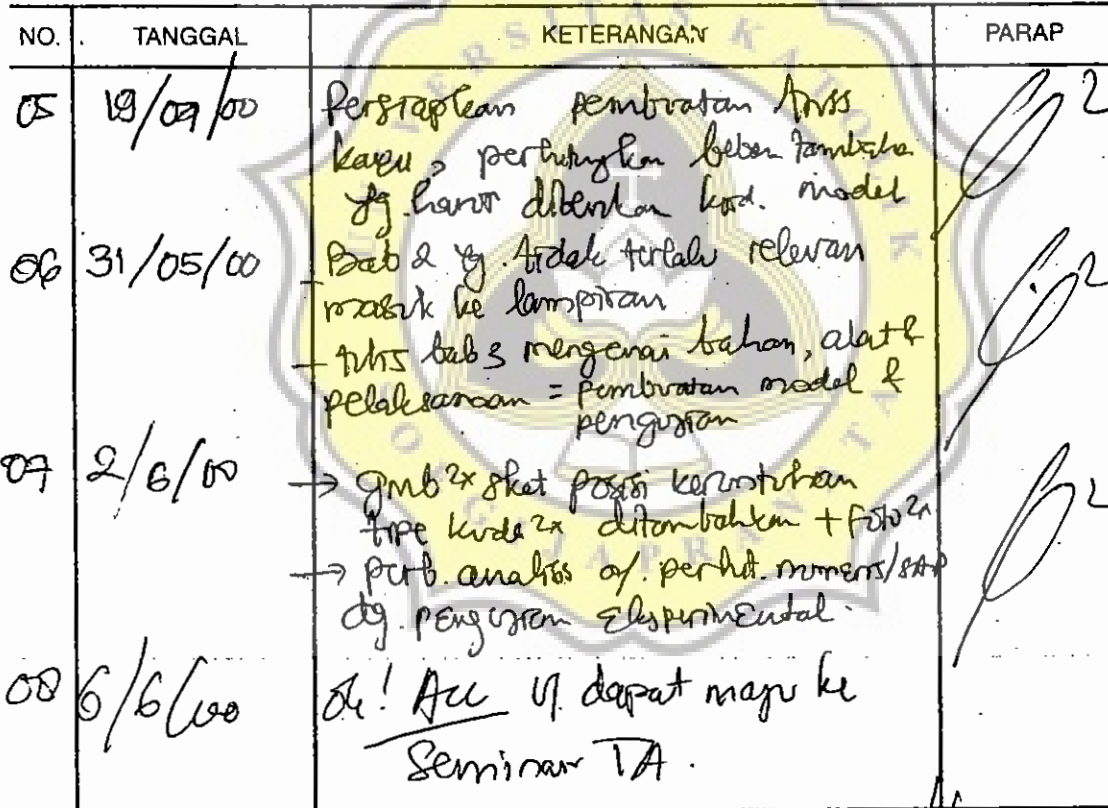 NO. TANGGAL KETERANGAN PARAP
05 19/09/00 Persiapkan pembuatan
kayu, perhitungkan beban tambahan
yg. harus diberikan kpd. model
06 31/05/00 - Bab 2 yg. tidak terlalu relevan
masuk ke lampiran
- tulis bab 3 mengenai bahan, alat &
pelaksanaan = pembuatan model &
pengujian
07 2/6/00 → gmb2x sket posisi keruntuhan
type kuda2x ditambahkan + foto2x
→ perb. analisis a/. perhit. numeris/SAP
dg. pengujian Eksperimental.
08 6/6/00 Ok! Acc u/. dapat maju ke
Seminar TA.
UNIVERSITAS KATOLIK
SOEGIJAPRANATA